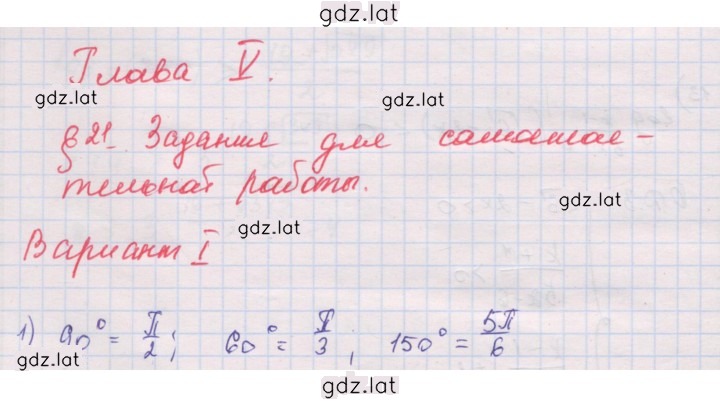 gdz.lat
Глава V.
gdz.lat
gdz.lat
§ 21. Задания для самостоя-
тельной работы.
gdz.lat
gdz.lat
Вариант I
1) 90° = π/2; 60° = π/3; 150° = 5π/6
gdz.lat
gdz.lat
gdz.lat